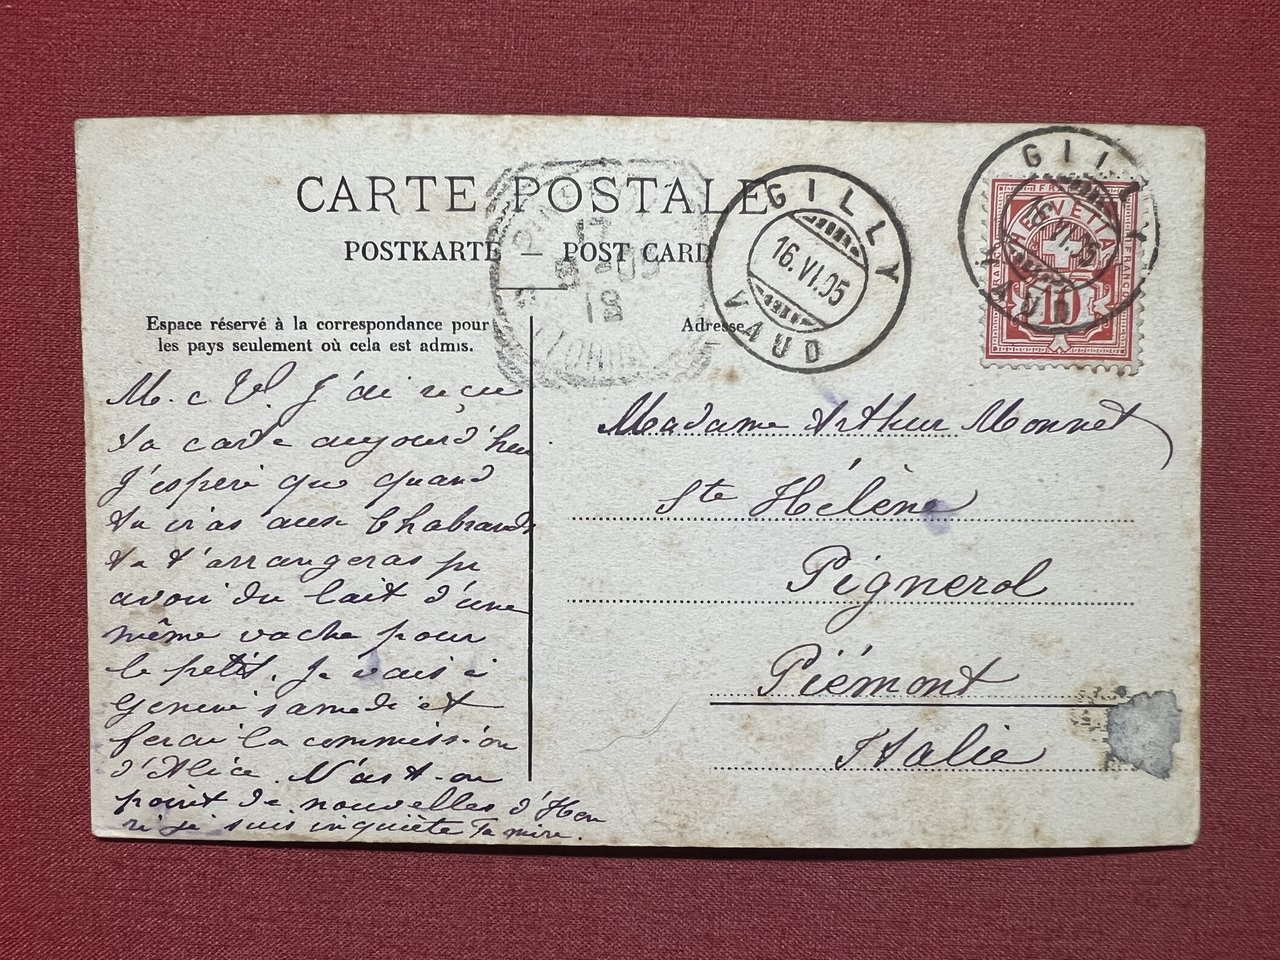 CARTE POSTALE
POSTKARTE — POST CARD
Espace réservé à la correspondance pour
les pays seulement où cela est admis.
Adresse
GILLY
16.VI.05
VAUD
GILLY
16.VI.05
VAUD
HELVETIA
FRANCO
10
17
6-05
18
M. c V. J'ai reçu
ta carte aujourd'hui
J'espère que quand
tu iras aux Chabrands
tu t'arrangeras pr
avoir du lait d'une
même vache pour
le petit. Je vais à
Genève samedi et
ferai la commission
d'Alice. N'as-t-on
point de nouvelles d'Hen
ri je suis inquiète Ta mère.
Madame Arthur Monnet
Ste Hélène
Pignerol
Piémont
Italie